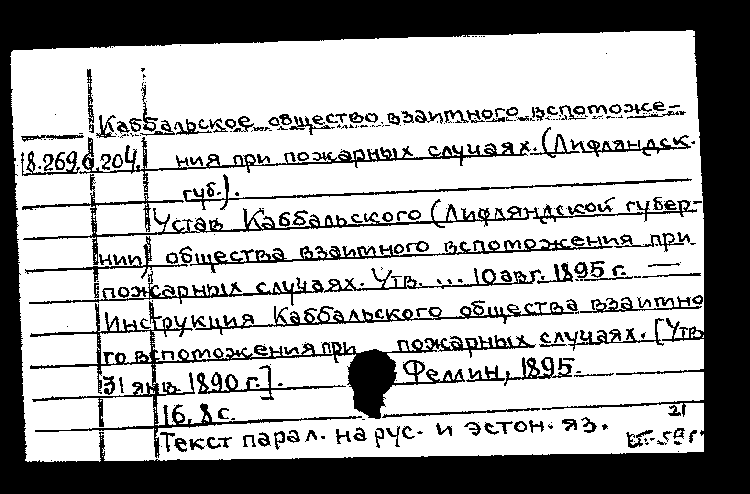 Каббальское общество взаимного вспоможе-
18.269.6.204. ния при пожарных случаях. (Лифляндск.
губ.).
Устав Каббальского (Лифляндской губер-
нии) общества взаимного вспоможения при
пожарных случаях. Утв. ... 10 авг. 1895 г. —
Инструкция Каббальского общества взаимно
го вспоможения при пожарных случаях. [Утв.
31 янв. 1890 г.]. Феллин, 1895.
16, 8 с.
Текст парал. на рус. и эстон. яз.
21